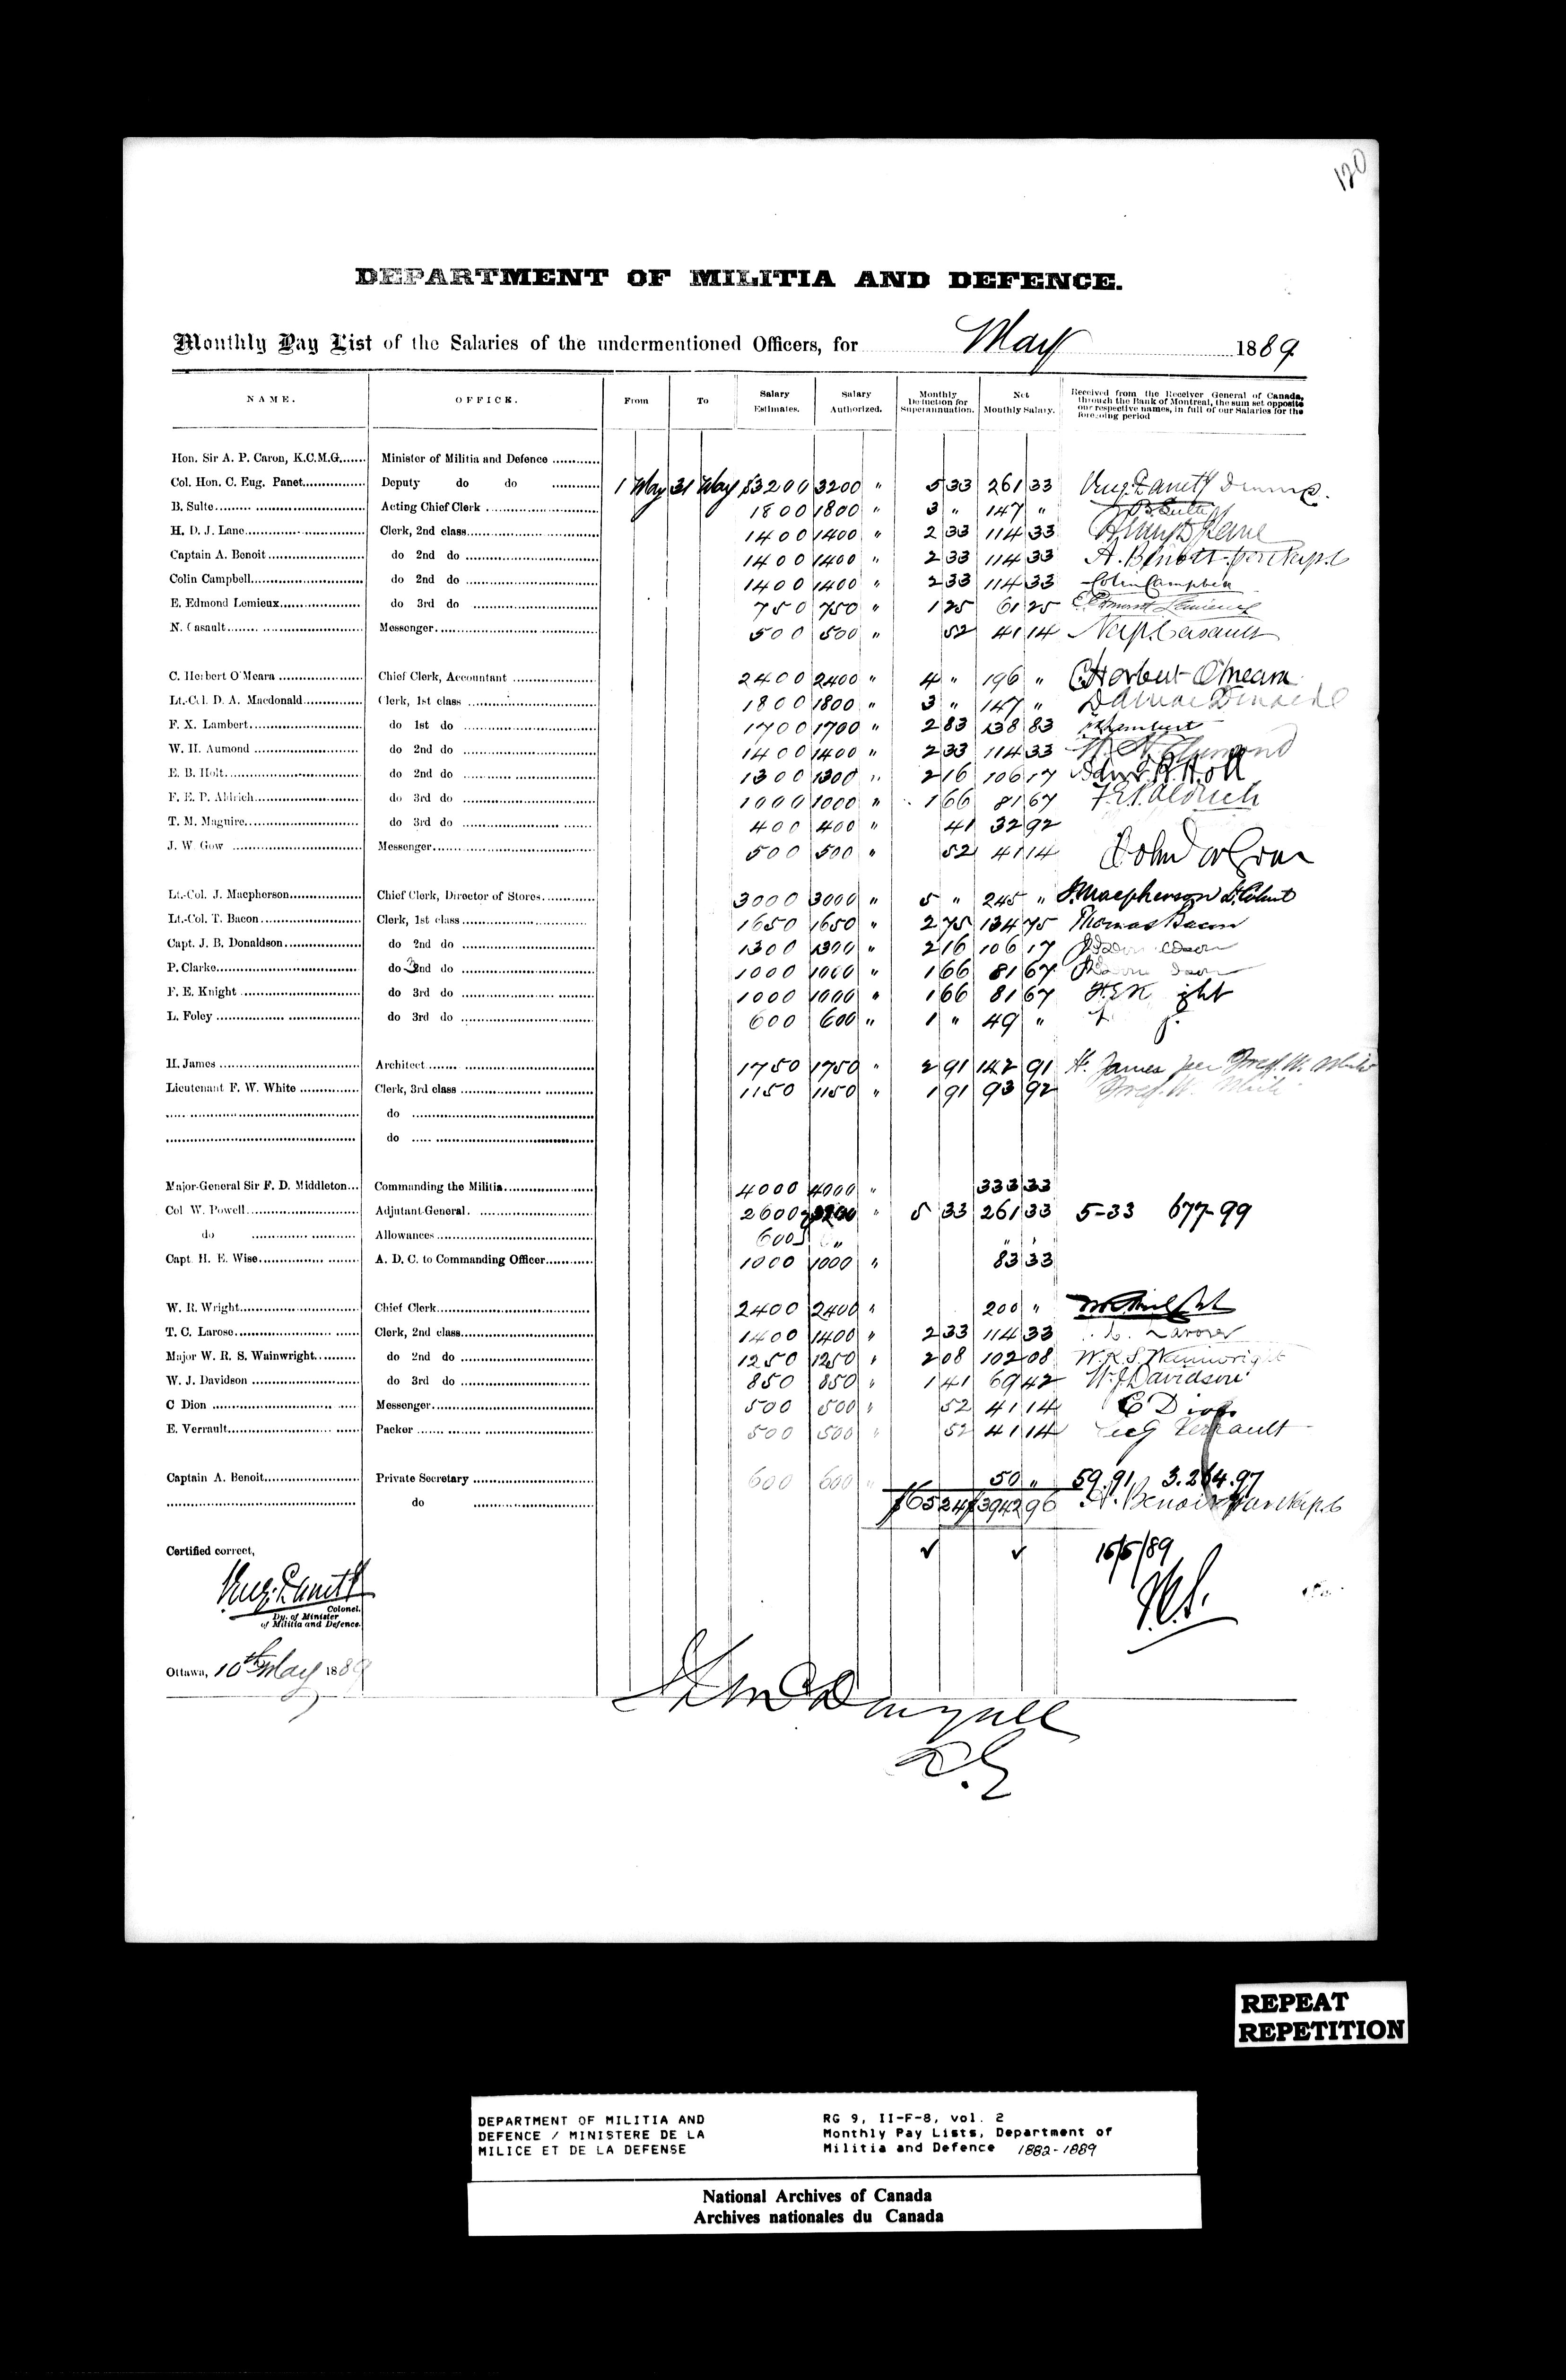 120
DEPARTMENT OF MILITIA AND DEFENCE.
Monthly Pay List of the Salaries of the undermentioned Officers, for May 1889
NAME. OFFICE. From To Salary Estimates. Salary Authorized. Monthly Deduction for Superannuation. Net Monthly Salary. Received from the Receiver General of Canada, through the Bank of Montreal, the sum set opposite our respective names, in full of our Salaries for the foregoing period
Hon. Sir A. P. Caron, K.C.M.G....... Minister of Militia and Defence ............
Col. Hon. C. Eug. Panet................ Deputy do do ............ 1 May 31 May $3200 3200 " 5 33 261 33 Eug. Panet
B. Sulte......... ............................ Acting Chief Clerk ............................ 1800 1800 " 3 " 147 " B. Sulte
H. D. J. Lane............................... Clerk, 2nd class............................... 1400 1400 " 2 33 114 33
Captain A. Benoit ......................... do 2nd do ............................... 1400 1400 " 2 33 114 33 A. Benoit
Colin Campbell............................. do 2nd do ............................... 1400 1400 " 2 33 114 33 Colin Campbell
E. Edmond Lemieux.................... do 3rd do ............................... 750 750 " 1 25 61 25 E. Edmond Lemieux
N. Casault................................... Messenger....................................... 500 500 " 52 41 14 Nap. Casault
C. Herbert O'Meara ..................... Chief Clerk, Accountant .................... 2400 2400 " 4 " 196 " C. Herbert O'Meara
Lt.-Col. D. A. Macdonald............... Clerk, 1st class ............................... 1800 1800 " 3 " 147 "
F. X. Lambert............................. do 1st do ............................... 1700 1700 " 2 83 138 83 F X Lambert
W. H. Aumond ........................... do 2nd do ............................... 1400 1400 " 2 33 114 33 W. H. Aumond
E. B. Holt................................... do 2nd do ............................... 1300 1300 " 2 16 106 17 Edw. B. Holt
F. E. P. Aldrich............................ do 3rd do ............................... 1000 1000 " 1 66 81 67 F.E.P. Aldrich
T. M. Maguire............................. do 3rd do ............................... 400 400 " 41 32 92
J. W. Gow ................................. Messenger....................................... 500 500 " 52 41 14 John W Gow
Lt.-Col. J. Macpherson................. Chief Clerk, Director of Stores............. 3000 3000 " 5 " 245 " J. Macpherson Lt. Colonel
Lt.-Col. T. Bacon......................... Clerk, 1st class............................... 1650 1650 " 2 75 134 75 Thomas Bacon
Capt. J. B. Donaldson................... do 2nd do ............................... 1300 1300 " 2 16 106 17
P. Clarke.................................... do 32nd do ............................... 1000 1000 " 1 66 81 67
F. E. Knight ............................... do 3rd do ............................... 1000 1000 " 1 66 81 67 F.E.K ight
L. Foley ..................................... do 3rd do ............................... 600 600 " 1 " 49 "
H. James ................................... Architect ....................................... 1750 1750 " 2 91 142 91 H. James per Fred. W. White
Lieutenant F. W. White ............... Clerk, 3rd class ............................... 1150 1150 " 1 91 93 92 Fred. W. White
............................................... do .........................................
............................................... do .........................................
Major-General Sir F. D. Middleton... Commanding the Militia..................... 4000 4000 " 333 33
Col W. Powell............................. Adjutant-General. ............................ 2600 3200 " 5 33 261 33 5-33 677-99
do ........................ Allowances..................................... 600 " " "
Capt. H. E. Wise......................... A. D. C. to Commanding Officer............ 1000 1000 " 83 33
W. R. Wright............................. Chief Clerk..................................... 2400 2400 " 200 "
T. C. Larose............................... Clerk, 2nd class............................... 1400 1400 " 2 33 114 33 Larose
Major W. R. S. Wainwright.......... do 2nd do ............................... 1250 1250 " 2 08 102 08 W.R.S. Wainwright
W. J. Davidson ........................... do 3rd do ............................... 850 850 " 1 41 69 42 W.J. Davidson
C Dion ...................................... Messenger....................................... 500 500 " 52 41 14 C Dion
E. Verrault................................. Packer ......................................... 500 500 " 52 41 14 Verrault
Captain A. Benoit........................ Private Secretary ............................ 600 600 " 50 " 59.91 3.264.97
............................................... do ............................ $65 24 $3942 96 A. Benoit
Certified correct, ✓ ✓ 15/5/89
Eug. Panet
Colonel.
Dy. of Minister
of Militia and Defence.
Ottawa, 10th May 1889
REPEAT
REPETITION
DEPARTMENT OF MILITIA AND
DEFENCE / MINISTERE DE LA
MILICE ET DE LA DEFENSE
RG 9, II-F-8, vol. 2
Monthly Pay Lists, Department of
Militia and Defence 1882-1889
National Archives of Canada
Archives nationales du Canada